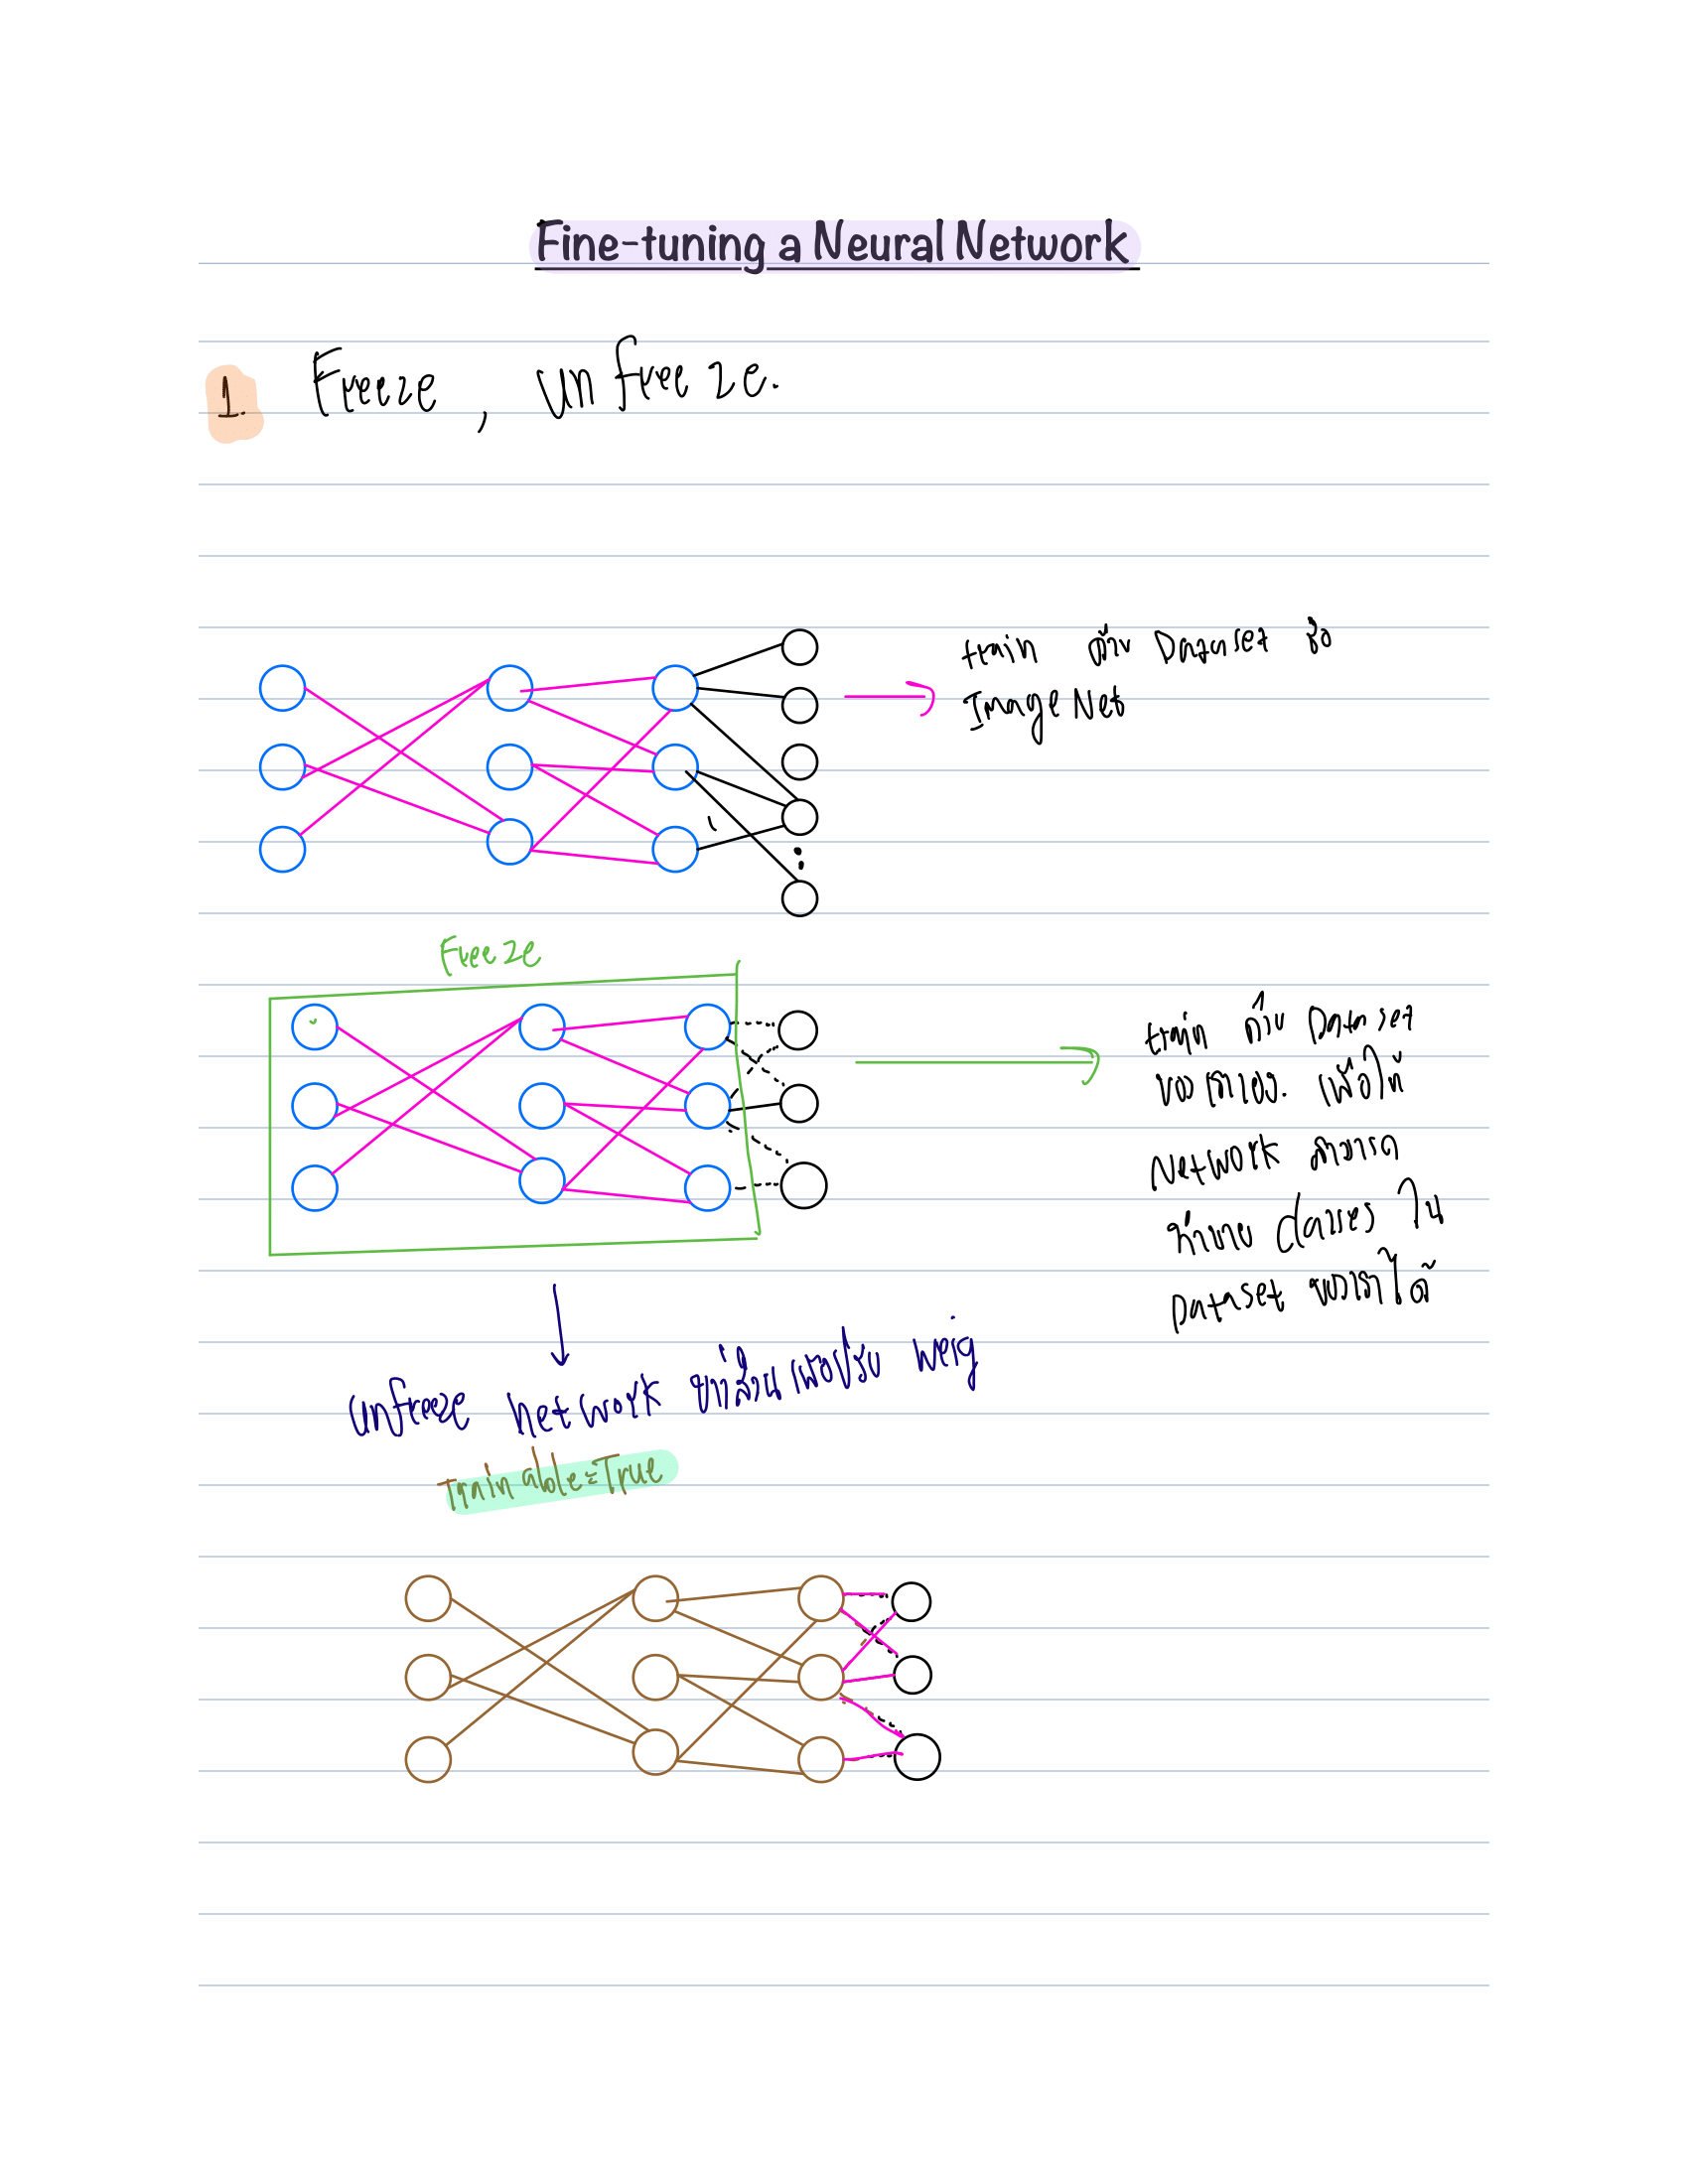 Fine-tuning a Neural Network
1. Freeze, unfreeze.
train ด้วย Dataset ชื่อ
ImageNet
Freeze
train ด้วย Dataset
ของเราเอง. เพื่อให้
Network สามารถ
ทำนาย classes ใน
Dataset ของเราได้
unfreeze network บางส่วนเพื่อปรับ weig
Trainable=True